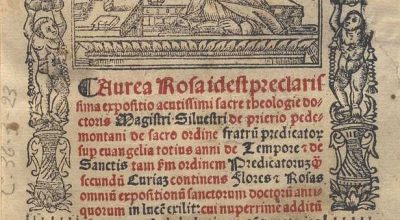 Aurea Rosa id est preclaris
sima expositio acutissimi sacre theologie do
ctoris Magistri Siluestri de prierio pede
montani de sacro ordine fratrũ predicator
sup euangelia totius anni de Tempore & de
Sanctis tam ẜm ordinem Predicatorum q̃
secundũ Curiaz continens Flores & Rosas
omniũ expositionũ sanctorum doctorũ anti
quorum in lucẽ exilit: cui nuperrime additũ